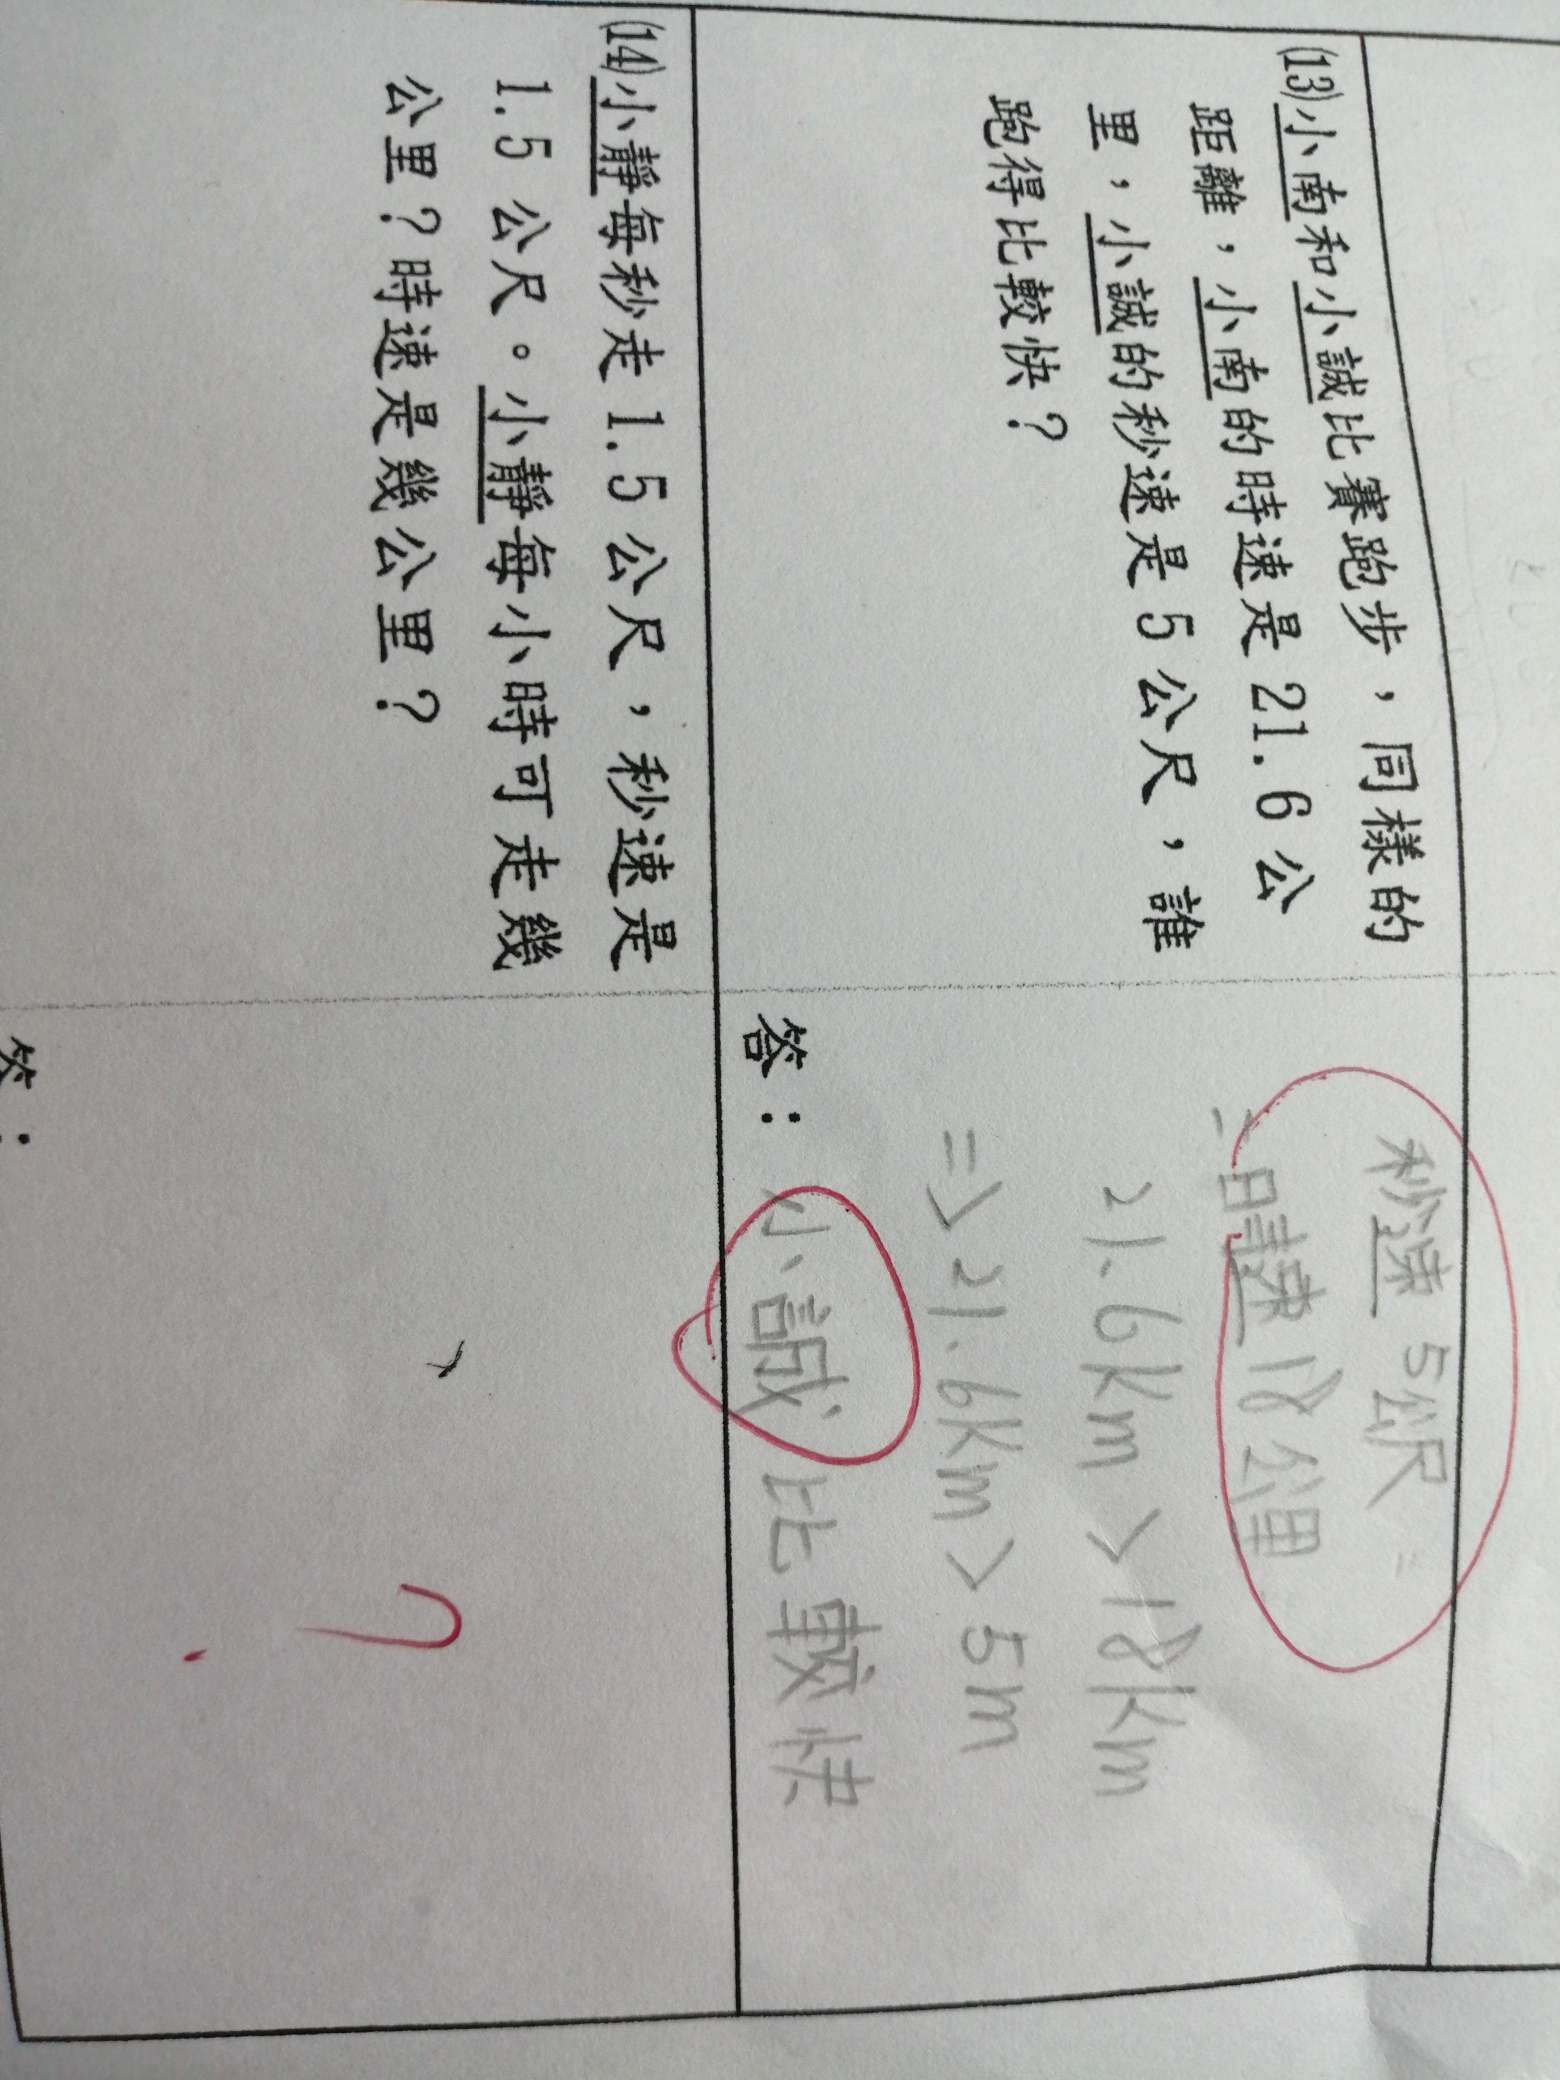 ⒀小南和小誠比賽跑步，同樣的
距離，小南的時速是 21.6 公
里，小誠的秒速是 5 公尺，誰
跑得比較快？
秒速 5公尺 =
=時速 18 公里
21.6km > 18km
=> 21.6km > 5m
答：小誠比較快
⒁小靜每秒走 1.5 公尺，秒速是
1.5 公尺。小靜每小時可走幾
公里？時速是幾公里？
?
答：